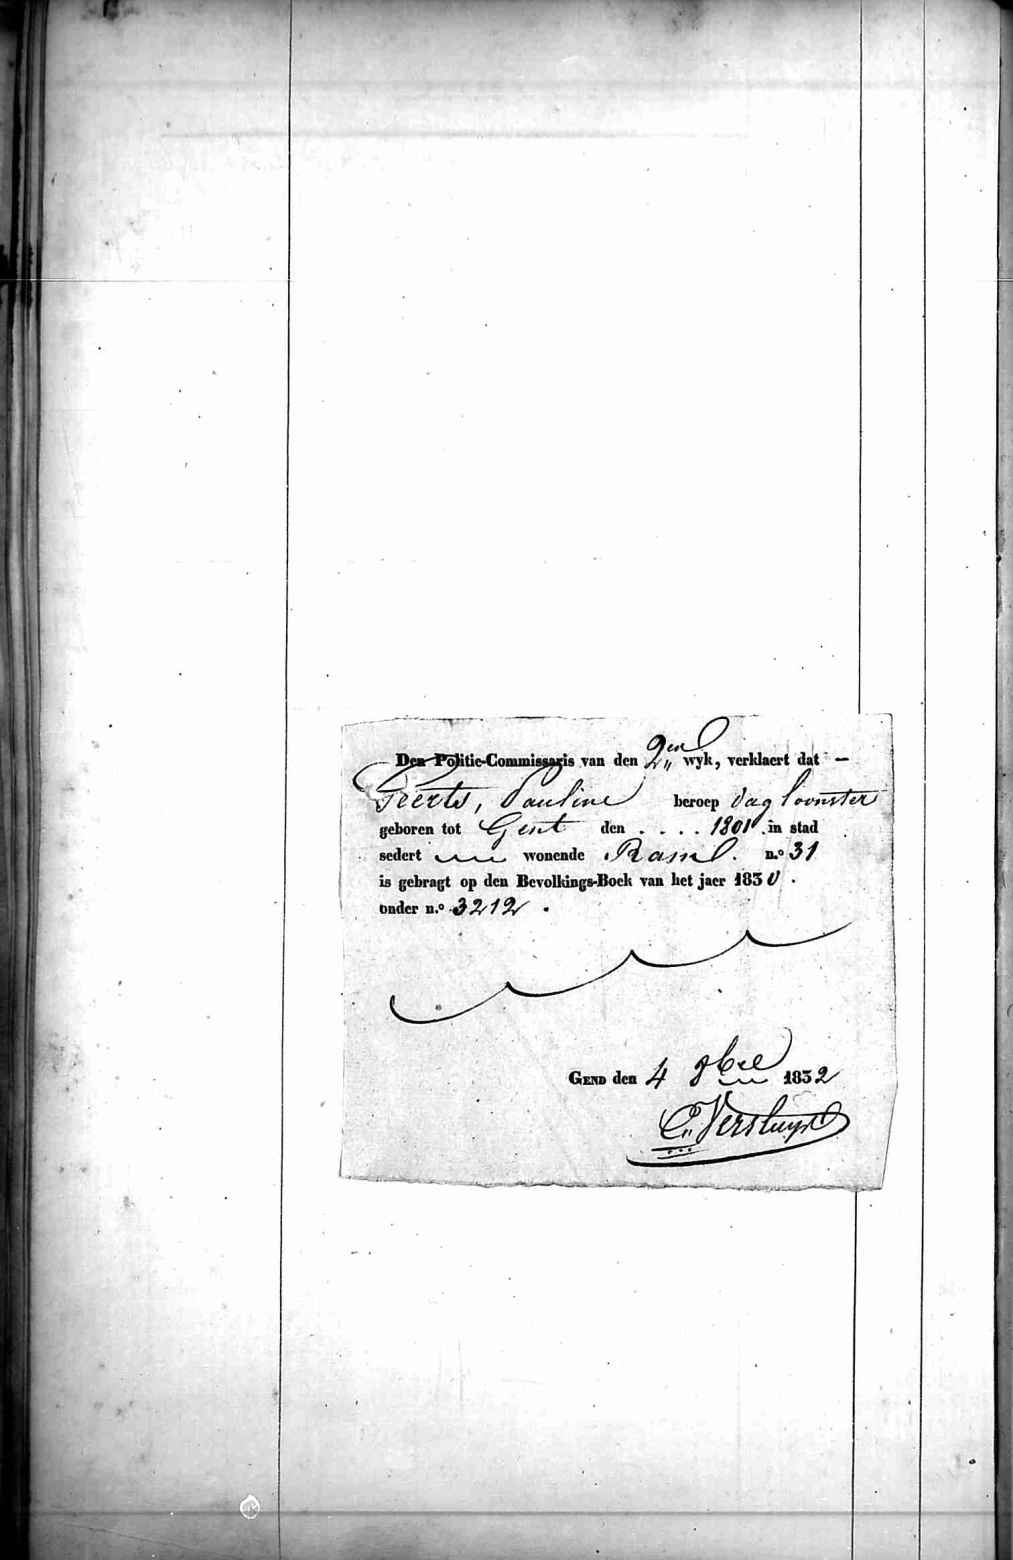 Den Politie-Commissaris van den 2en wyk, verklaert dat —
Geerts, Pauline beroep dagloonster
geboren tot Gent den . . . . 1801 . in stad
sedert wonende Rasml. n.o 31
is gebragt op den Bevolkings-Boek van het jaer 1830 .
onder n.o 3212 .
GEND den 4 8bre 1832
C. Versluys